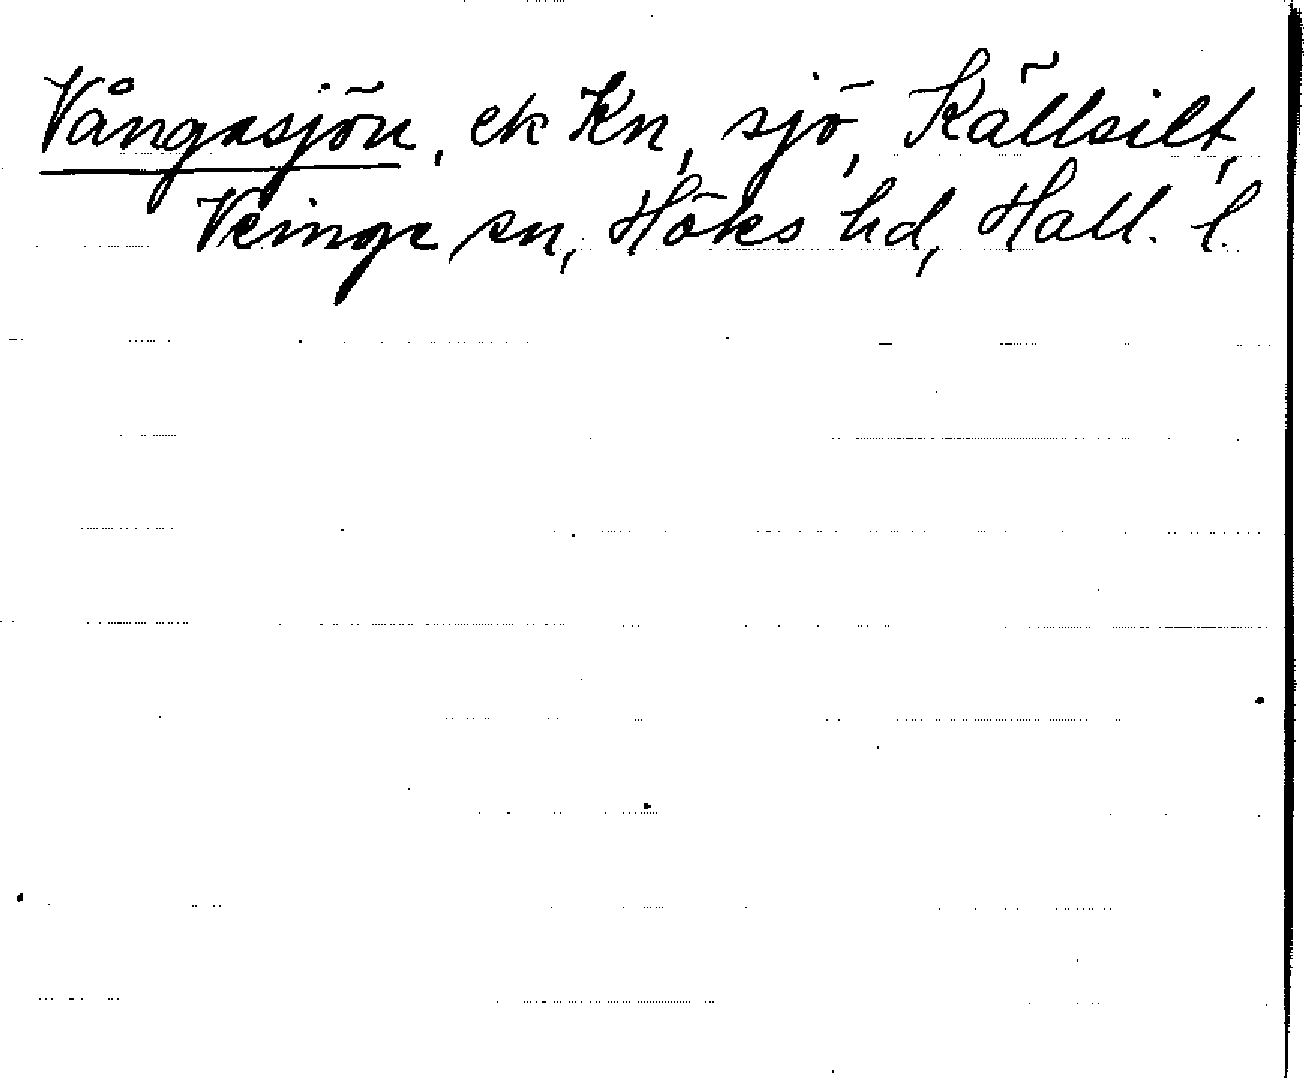 Vångasjön, ek Kn, sjö, Källsilt,
Veinge sn, Höks hd, Hall. l.